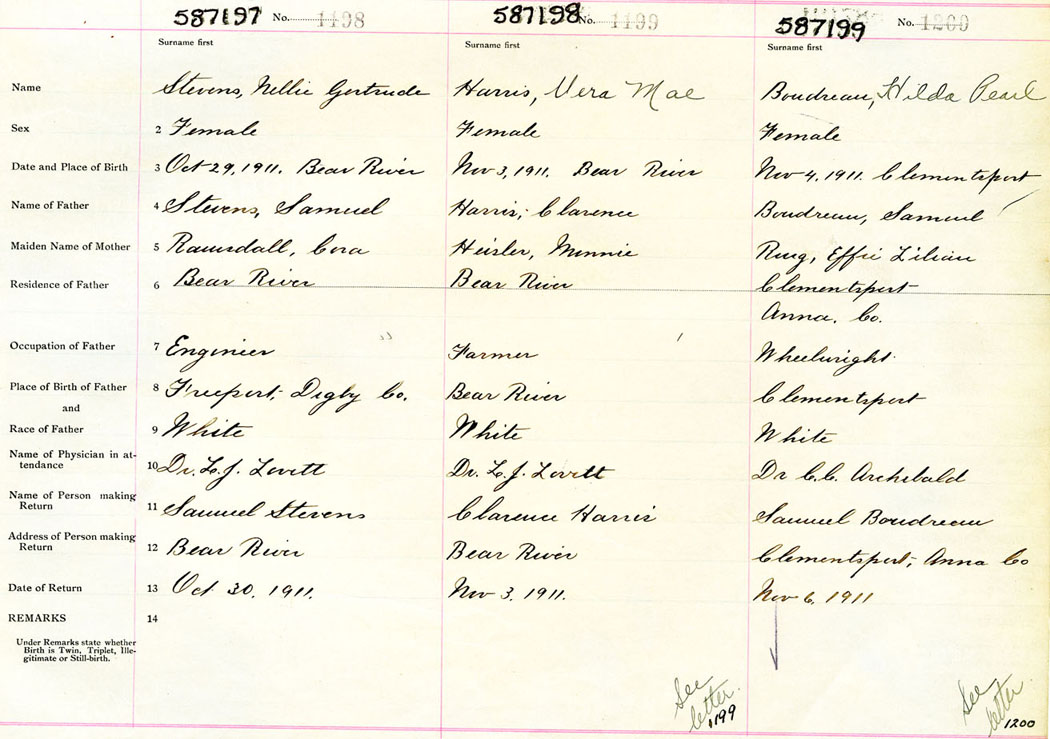 587197 No. 1198 587198 No. 1199 587199 No. 1200
Surname first Surname first Surname first
Name Stevens, Nellie Gertrude Harris, Vera Mae Boudreau, Hilda Pearl
Sex 2 Female Female Female
Date and Place of Birth 3 Oct 29, 1911. Bear River Nov 3, 1911. Bear River Nov 4, 1911. Clementsport
Name of Father 4 Stevens, Samuel Harris, Clarence Boudreau, Samuel
Maiden Name of Mother 5 Ramsdall, Cora Heisler, Minnie Ring, Effie Lilian
Residence of Father 6 Bear River Bear River Clementsport
Anna. Co.
Occupation of Father 7 Engineer Farmer Wheelwright
Place of Birth of Father 8 Freeport, Digby Co. Bear River Clementsport
and
Race of Father 9 White White White
Name of Physician in at-
tendance 10 Dr. L. J. Lovett Dr. L. J. Lovett Dr C.C. Archibald
Name of Person making
Return 11 Samuel Stevens Clarence Harris Samuel Boudreau
Address of Person making
Return 12 Bear River Bear River Clementsport, Anna Co
Date of Return 13 Oct 30, 1911. Nov 3, 1911. Nov 6, 1911
REMARKS 14
Under Remarks state whether
Birth is Twin, Triplet, Ille-
gitimate or Still-birth.
See See
letter. letter
1199 1200